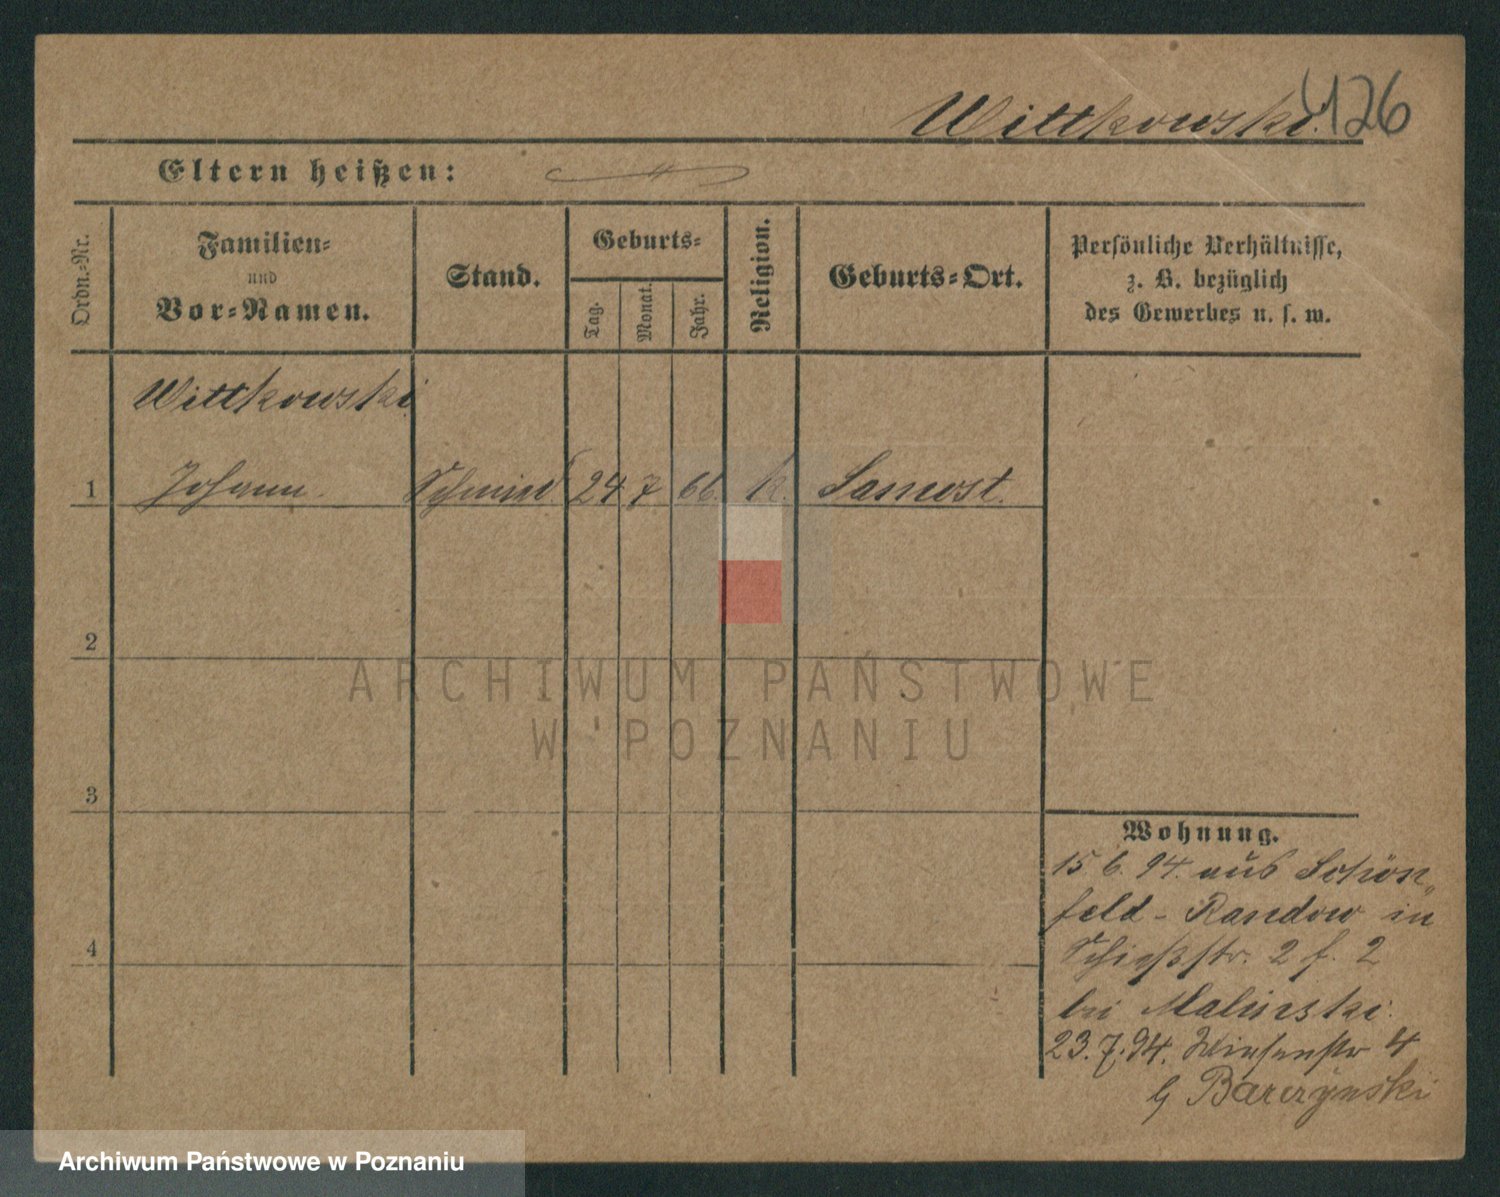 Wittkowski. 426
Eltern heißen:
Ordn.-Nr.
Familien-
und
Vor-Namen.
Stand.
Geburts-
Tag.
Monat.
Jahr.
Religion.
Geburts-Ort.
Persönliche Verhältnisse,
z. B. bezüglich
des Gewerbes u. s. w.
Wittkowski
1 Johann. Schmied 24 7 66. k. Samost.
2
3
4
Wohnung.
15 6. 94. aus Schön„
feld - Randow in
Schießstr. 2 f. 2
bei Malinski.
23. 7. 94. Wiesenstr 4
b Barczynski
ARCHIWUM PAŃSTWOWE
W POZNANIU
Archiwum Państwowe w Poznaniu